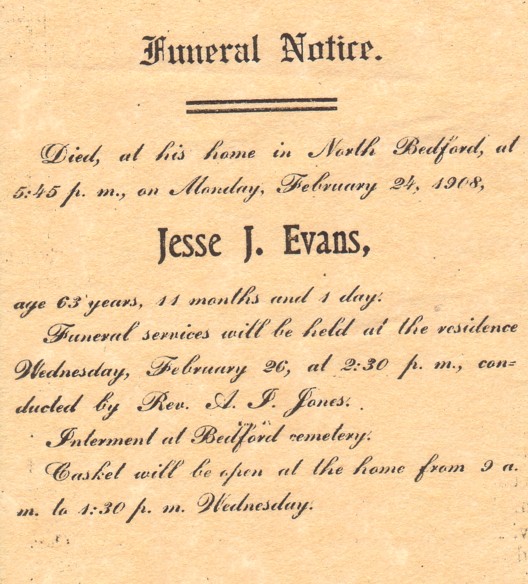 Funeral Notice.
Died, at his home in North Bedford, at
5:45 p. m., on Monday, February 24, 1908,
Jesse J. Evans,
age 63 years, 11 months and 1 day.
Funeral services will be held at the residence
Wednesday, February 26, at 2:30 p. m., con=
ducted by Rev. A. I. Jones.
Interment at Bedford cemetery.
Casket will be open at the home from 9 a.
m. to 1:30 p. m. Wednesday.